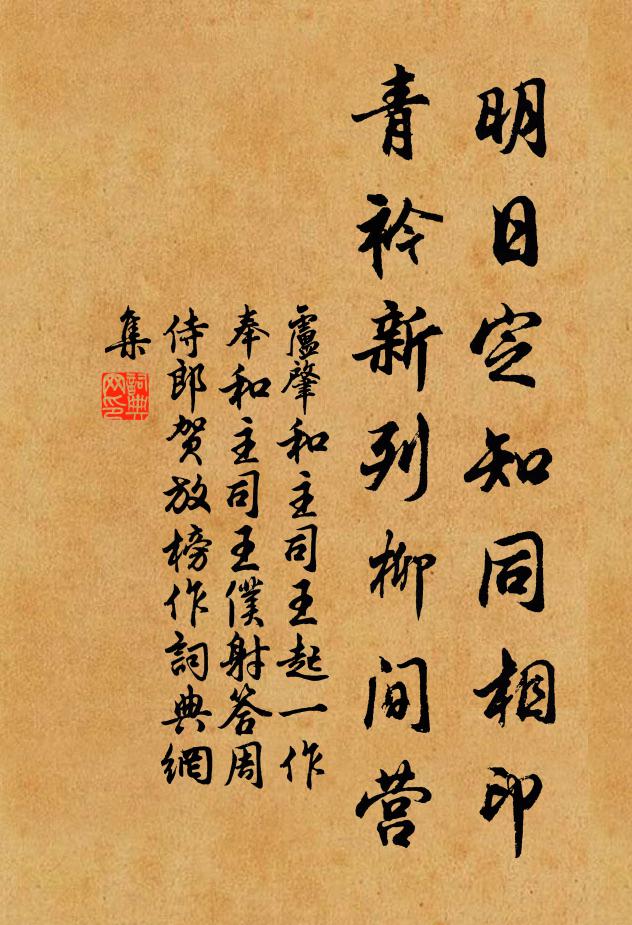 明日定知同相印
青衿新列柳间营
盧肇和主司王起一作
奉和主司王僕射答周
侍郎贺放榜作詞典網
集
詞典网印